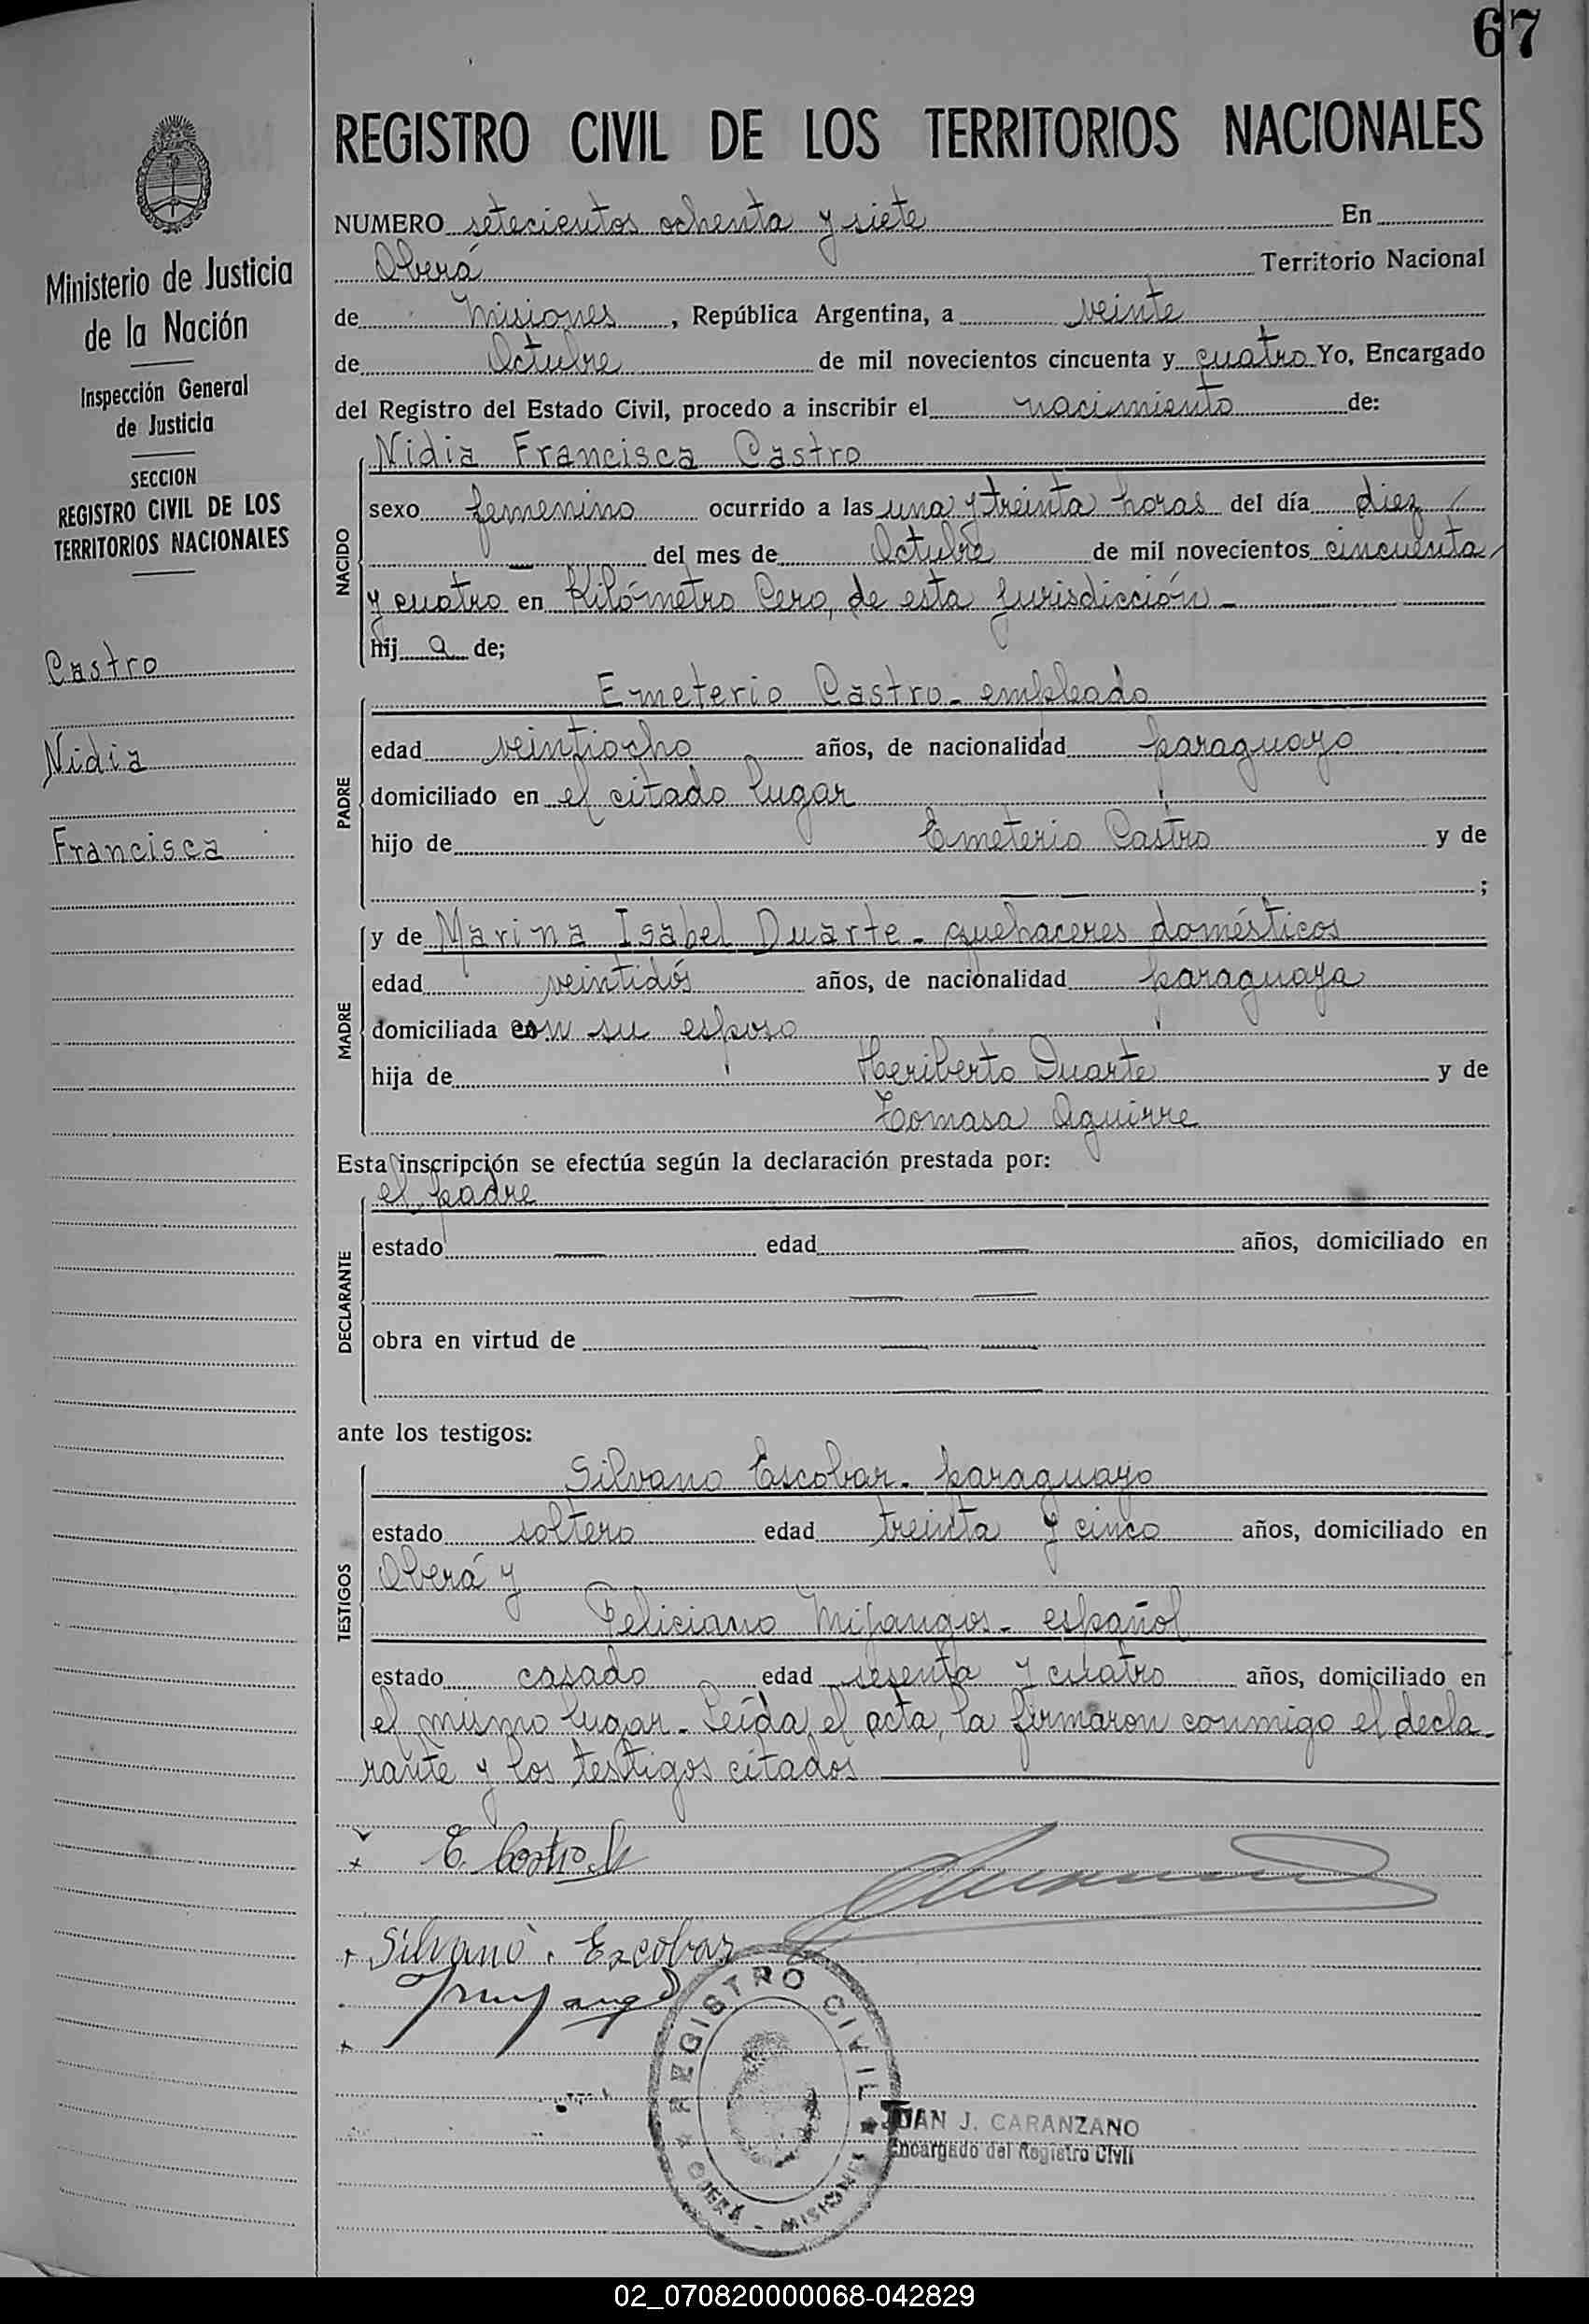 67
REGISTRO CIVIL DE LOS TERRITORIOS NACIONALES
Ministerio de Justicia
de la Nación
Inspección General
de Justicia
SECCION
REGISTRO CIVIL DE LOS
TERRITORIOS NACIONALES
Castro
Nidia
Francisca
NUMERO setecientos ochenta y siete En
Oberá Territorio Nacional
de Misiones, República Argentina, a veinte
de Octubre de mil novecientos cincuenta y cuatro Yo, Encargado
del Registro del Estado Civil, procedo a inscribir el nacimiento de:
NACIDO
Nidia Francisca Castro
sexo femenino ocurrido a las una y treinta horas del día diez
del mes de Octubre de mil novecientos cincuenta
y cuatro en Kilómetro Cero, de esta jurisdicción
hij a de;
PADRE
Emeterio Castro - empleado
edad veintiocho años, de nacionalidad paraguayo
domiciliado en el citado lugar
hijo de Emeterio Castro y de
;
MADRE
y de Marina Isabel Duarte - quehaceres domésticos
edad veintidós años, de nacionalidad paraguaya
domiciliada con su esposo
hija de Heriberto Duarte y de
Tomasa Aguirre
Esta inscripción se efectúa según la declaración prestada por:
DECLARANTE
el padre
estado — edad — años, domiciliado en
— —
obra en virtud de — —
— —
ante los testigos:
TESTIGOS
Silvano Escobar - paraguayo
estado soltero edad treinta y cinco años, domiciliado en
Oberá y
Feliciano Mijangos - español
estado casado edad sesenta y cuatro años, domiciliado en
el mismo lugar. Leída el acta, la firmaron conmigo el decla-
rante y los testigos citados
E. Castro
Silvano. Escobar
REGISTRO CIVIL
OBERÁ - MISIONES
JUAN J. CARANZANO
Encargado del Registro Civil
02_070820000068-042829